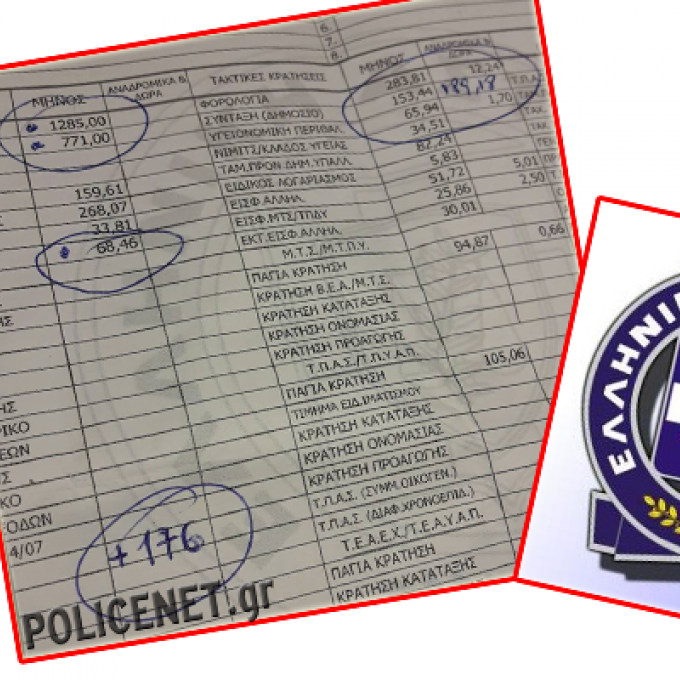 6.
7.
8.
ΜΗΝΟΣ ΑΝΑΔΡΟΜΙΚΑ & ΔΩΡΑ ΤΑΚΤΙΚΕΣ ΚΡΑΤΗΣΕΙΣ ΜΗΝΟΣ ΑΝΑΔΡΟΜΙΚΑ & ΔΩΡΑ
1285,00 ΦΟΡΟΛΟΓΙΑ 283,81 12,24
771,00 ΣΥΝΤΑΞΗ (ΔΗΜΟΣΙΟ) 153,44 189,18 Τ.Π.Α.
ΥΓΕΙΟΝΟΜΙΚΗ ΠΕΡΙΘΑΛ. 65,94 1,70 ΤΑΚ
ΝΙΜΙΤΣ/ΚΛΑΔΟΣ ΥΓΕΙΑΣ 34,51
159,61 ΤΑΜ.ΠΡΟΝ.ΔΗΜ.ΥΠΑΛΛ. 82,24
268,07 ΕΙΔΙΚΟΣ ΛΟΓΑΡΙΑΣΜΟΣ 5,83
33,81 ΕΙΣΦ.ΑΛΛΗΛ. 51,72 5,01
68,46 ΕΙΣΦ.ΜΤΣ/ΤΠΔΥ 25,86 2,50
ΕΚΤ.ΕΙΣΦ.ΑΛΛΗΛ. 30,01
Μ.Τ.Σ./Μ.Τ.Π.Υ.
ΠΑΓΙΑ ΚΡΑΤΗΣΗ 94,87 0,66
ΚΡΑΤΗΣΗ Β.Ε.Α./Μ.Τ.Σ.
ΚΡΑΤΗΣΗ ΚΑΤΑΤΑΞΗΣ
ΚΡΑΤΗΣΗ ΟΝΟΜΑΣΙΑΣ
ΚΡΑΤΗΣΗ ΠΡΟΑΓΩΓΗΣ
Τ.Π.Α.Σ./Τ.Π.Υ.Α.Π.
ΠΑΓΙΑ ΚΡΑΤΗΣΗ 105,06
ΗΣ ΤΙΜΗΜΑ ΕΙΔ.ΙΜΑΤΙΣΜΟΥ
ΡΙΚΟ ΚΡΑΤΗΣΗ ΚΑΤΑΤΑΞΗΣ
ΕΩΝ ΚΡΑΤΗΣΗ ΟΝΟΜΑΣΙΑΣ
Σ ΚΡΑΤΗΣΗ ΠΡΟΑΓΩΓΗΣ
ΚΟ Τ.Π.Α.Σ. (ΣΥΜΜ.ΟΙΚΟΓΕΝ.)
ΟΔΩΝ Τ.Π.Α.Σ. (ΔΙΑΦ.ΧΡΟΝΟΕΠΙΔ.)
4/07 + 176 Τ.Ε.Α.Ε.Χ./Τ.Ε.Α.Υ.Α.Π.
ΠΑΓΙΑ ΚΡΑΤΗΣΗ
ΚΡΑΤΗΣΗ ΚΑΤΑΤΑΞΗΣ
POLICENET.gr
ΕΛΛΗΝΙ